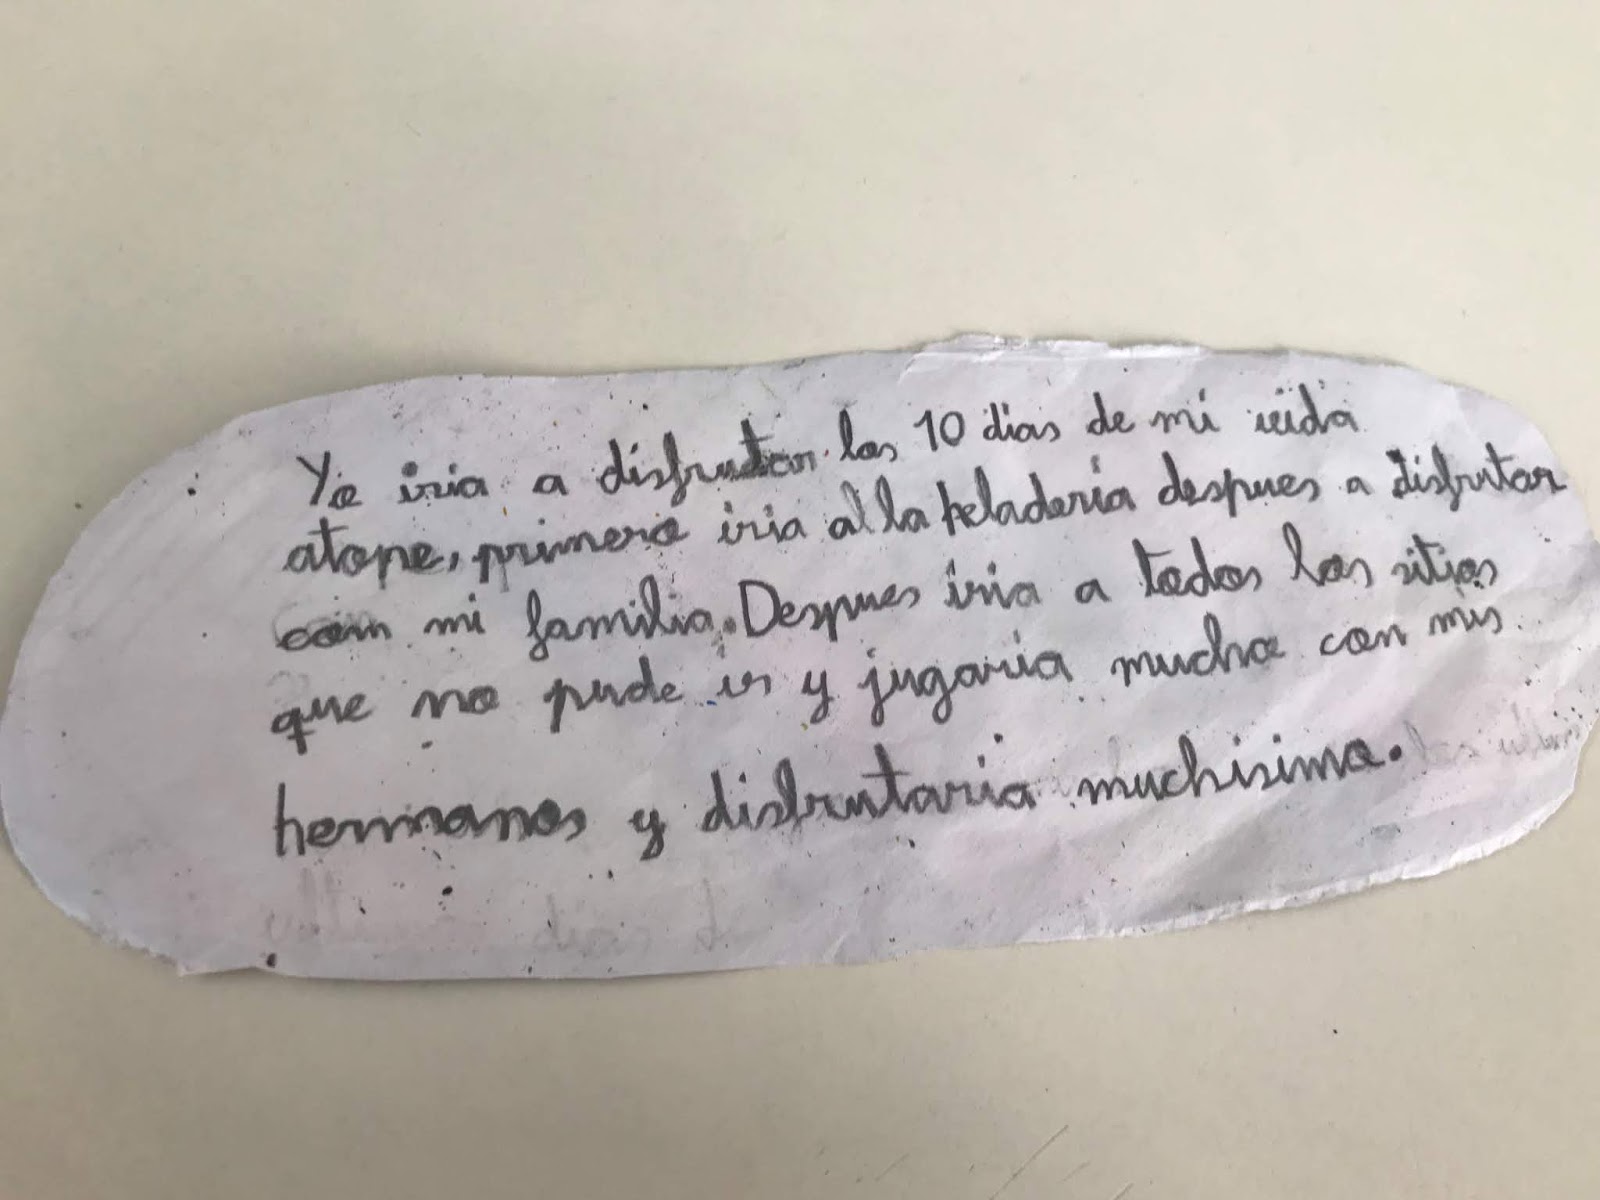 Yo iria a disfrutar los 10 dias de mi vida
atope, primero iria al la heladería despues a disfrutar
com mi familia. Despues iria a todos los sitios
que no pude ir y jugaría mucho con mis
hermanos y disfrutaria muchisimo.
dias de